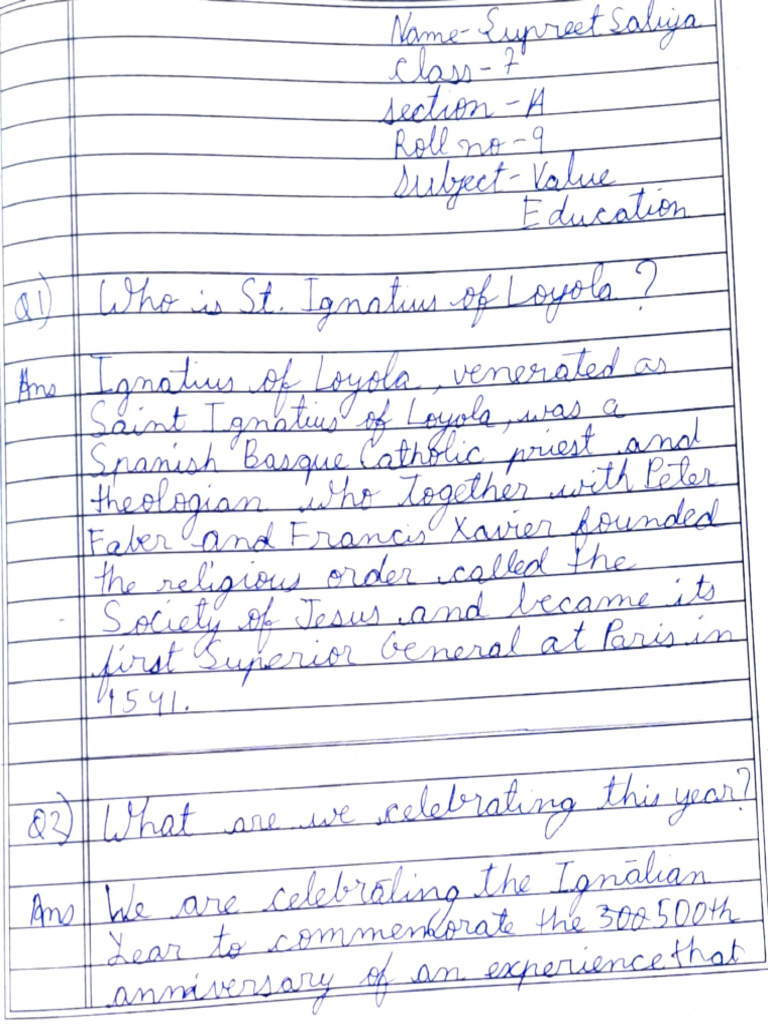 Name- Supreet Saluja
Class - 7
Section - A
Roll no - 9
Subject - Value
Education
Q1) Who is St. Ignatius of Loyola ?
Ans Ignatius of Loyola, venerated as
Saint Ignatius of Loyola, was a
Spanish Basque Catholic priest and
theologian who together with Peter
Faber and Francis Xavier founded
the religious order called the
Society of Jesus and became its
first Superior General at Paris in
1541.
Q2) What are we celebrating this year?
Ans We are celebrating the Ignatian
Year to commemorate the 500th
anniversary of an experience that